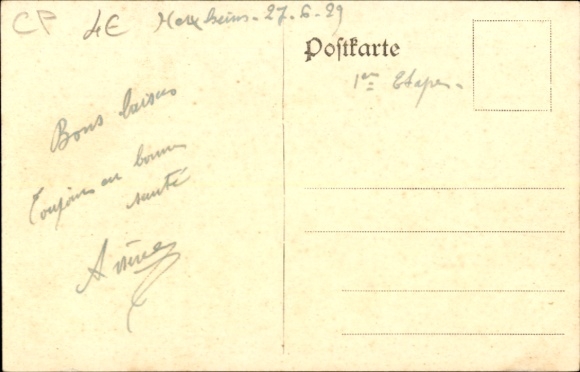 CP 4E Merxheim - 27. 6. 29
Postkarte
1ère Etape -
Bons baisers
Toujours en bonne
santé
Arsène